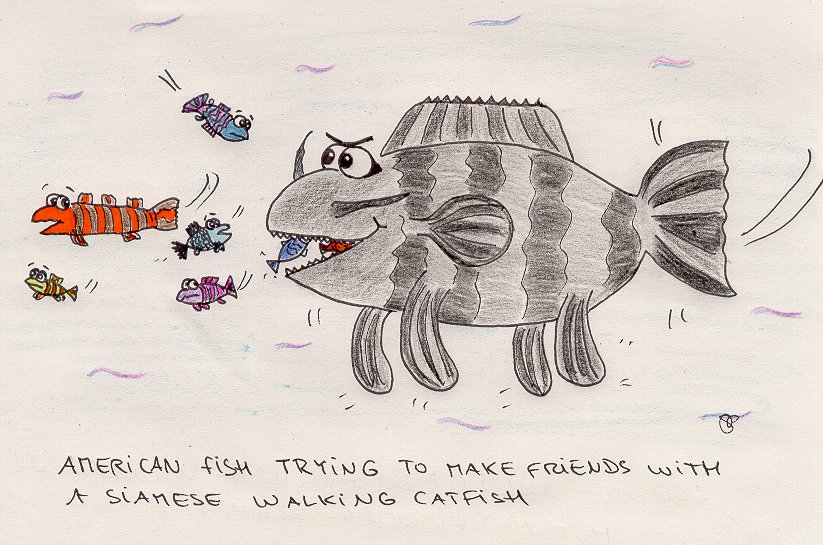 AMERICAN FISH TRYING TO MAKE FRIENDS WITH
A SIAMESE WALKING CATFISH